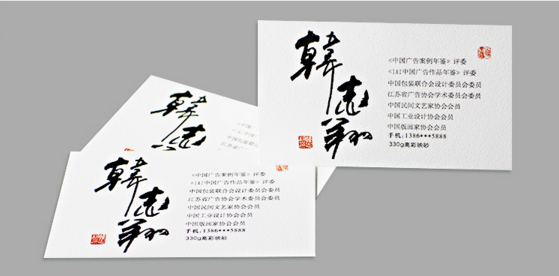 韩志翔
《中国广告案例年鉴》评委
《IAI中国广告作品年鉴》评委
中国包装联合会设计委员会委员
江苏省广告协会学术委员会委员
中国民间文艺家协会会员
中国工业设计协会会员
中国版画家协会会员
手机:1386***5888
330g高彩映砂
韩志
韩志翔
《中国广告案例年鉴》评委
《IAI中国广告作品年鉴》评委
中国包装联合会设计委员会委员
江苏省广告协会学术委员会委员
中国民间文艺家协会会员
中国工业设计协会会员
中国版画家协会会员
手机:1386***5888
330g高彩映砂